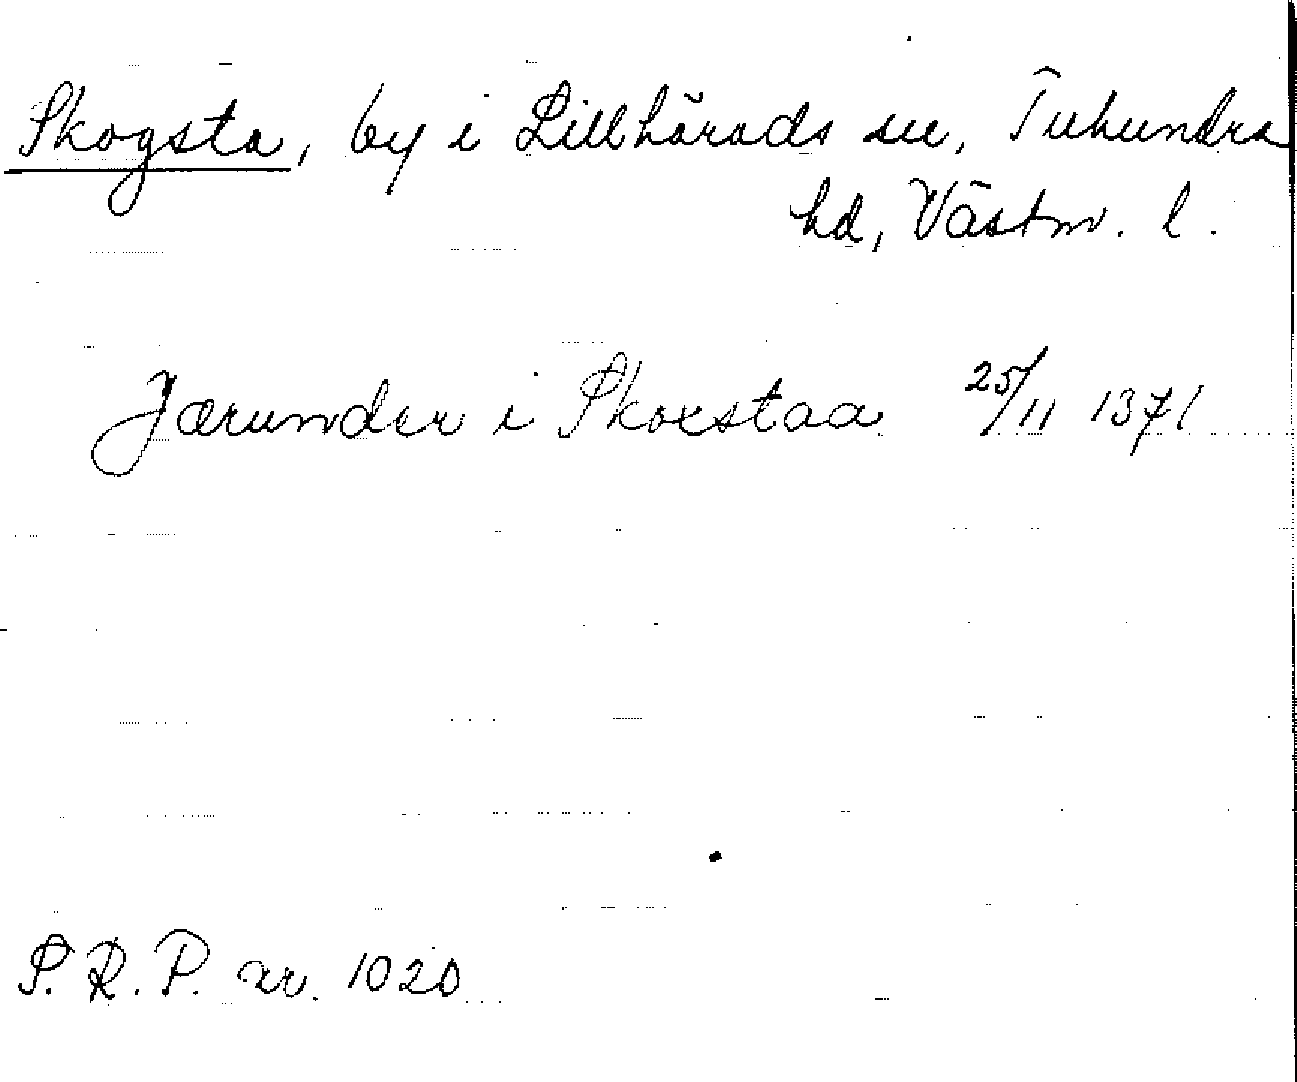 Skogsta, by i Lillhärads sn, Tuhundra
hd, Västm. l.
Jærunder i Skoxstaa 25/11 1371
S.R.P. nr. 1020